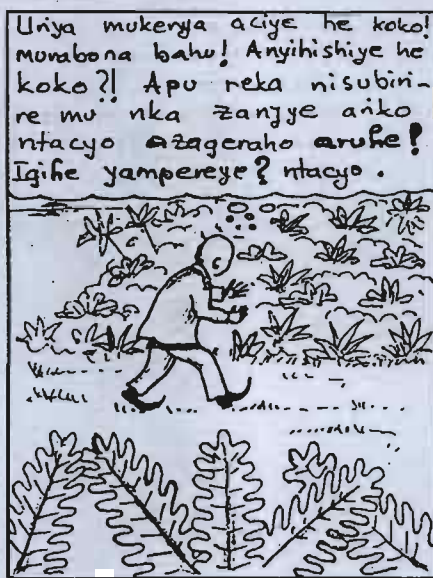 Uriya mukenya aciye he koko!
murabona bahu! Anyihishiye he
koko?! Apu reka nisubiri-
re mu nka zanjye ariko
ntacyo azageraho aruhe!
Igihe yampereye? ntacyo.